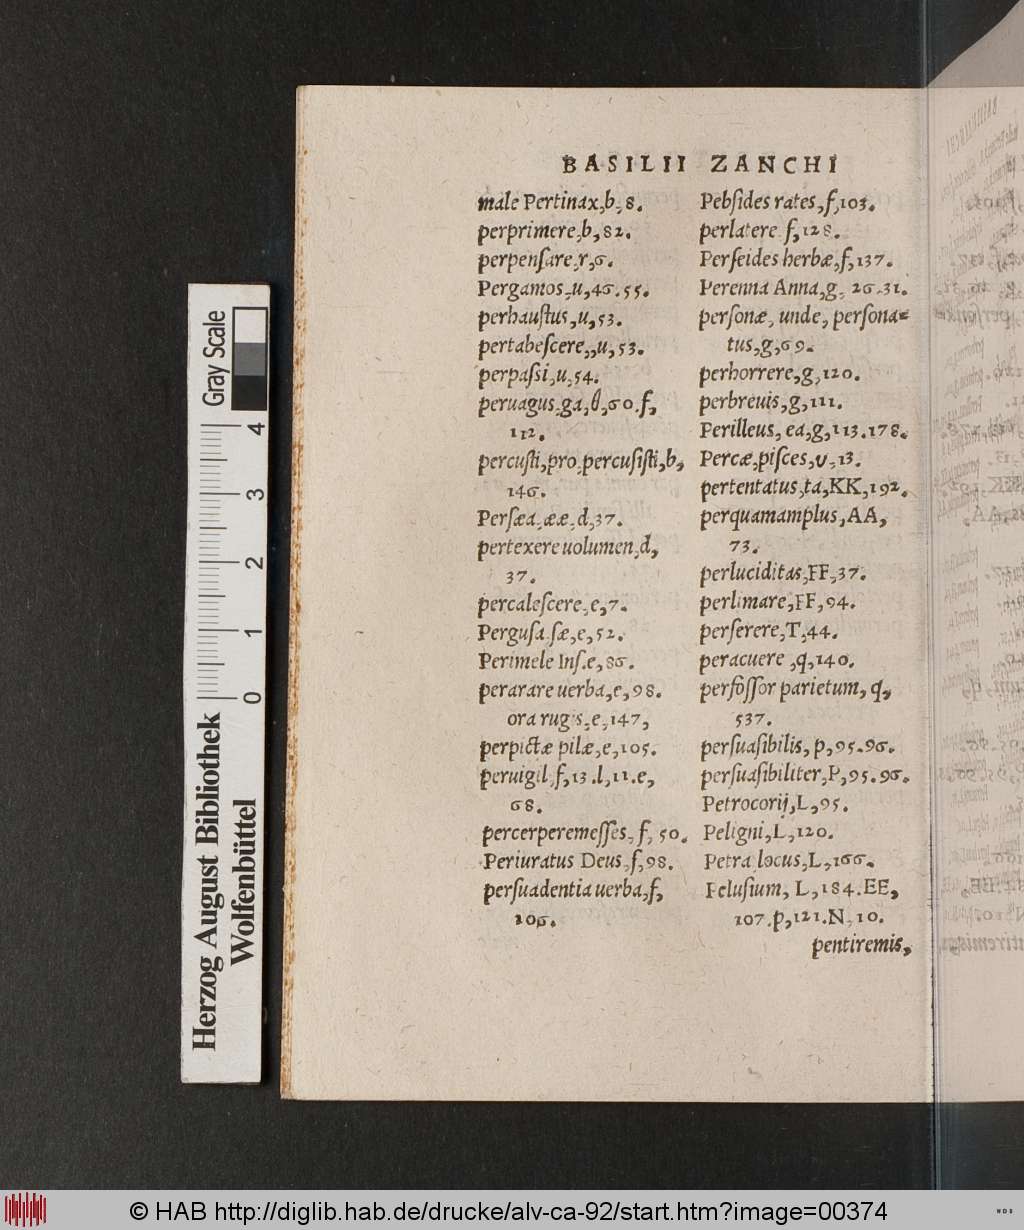 BASILII ZANCHI
male Pertinax,b,8.
perprimere,b,82.
perpenſare,r,6.
Pergamos,u,46.55.
perhauſtus,u,53.
pertabeſcere,,u,53.
perpaſsi,u,54.
peruagus,ga,θ,60.f,
112.
percuſti,pro percuſiſti,b,
146.
Perſæa,ææ,d,37.
pertexere uolumen,d,
37.
percaleſcere,e,7.
Perguſa ſæ,e,52.
Perimele Inſ.e,86.
perarare uerba,e,98.
ora rugis,e,147,
perpictæ pilæ,e,105.
peruigil f,13.l,11.e,
68.
percerperemeſſes, f, 50.
Periuratus Deus,f,98.
perſuadentia uerba,f,
106.
Pebſides rates,f,103.
perlatere f,128.
Perſeides herbæ,f,137.
Perenna Anna,g, 26.31.
perſonæ, unde, perſona=
tus,g,69.
perhorrere,g,120.
perbreuis,g,111.
Perilleus, ea,g,113.178.
Percæ,piſces,υ,13.
pertentatus,ta,KK,192.
perquamamplus,AA,
73.
perluciditas,FF,37.
perlimare,FF,94.
perſerere,T,44.
peracuere ,q,140.
perfoſſor parietum, q,
537.
perſuaſibilis, p,95.96.
perſuaſibiliter,P,95.96.
Petrocorij,L,95.
Peligni,L,120.
Petra locus,L,166.
Peluſium, L,184.EE,
107.p,121.N,10.
pentiremis,
Gray Scale
0 1 2 3 4
Herzog August Bibliothek
Wolfenbüttel
© HAB http://diglib.hab.de/drucke/alv-ca-92/start.htm?image=00374